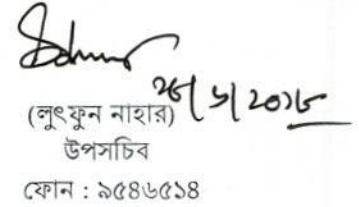 ২৮/৬/২০১৮
(লুৎফুন নাহার)
উপসচিব
ফোন : ৯৫৪৬৫১৪